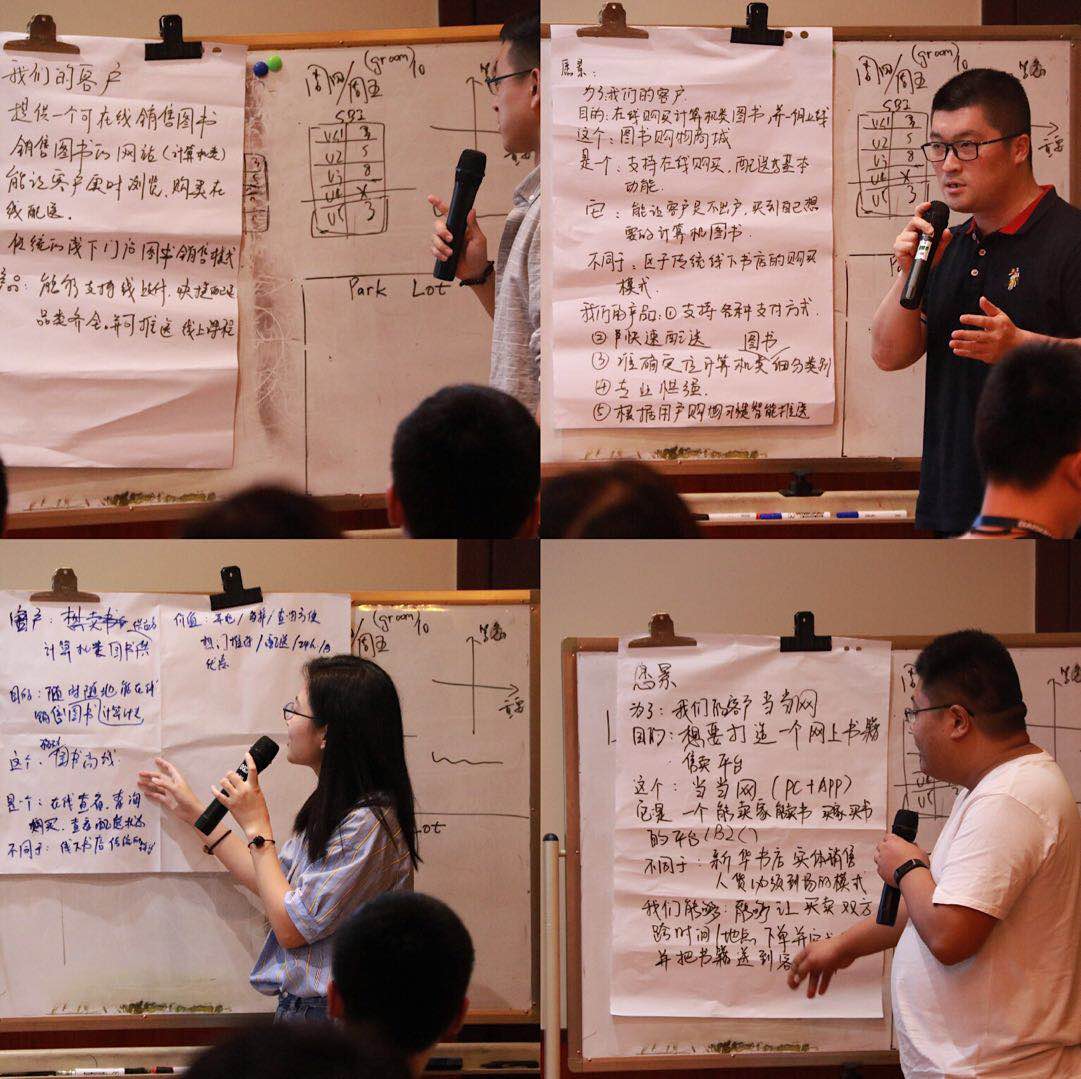 我们的客户
提供一个可在线销售图书
销售图书的网站(计算机类)
能让客户实时浏览、购买在
线配送。
传统的线下门店图书销售模式
产品: 能够支持线上支付、快捷配送
品类齐全、并可推送线上课程
周四/周五
(groom)
10
SP2
US1 3
U2 5
U3 8
U5 3
Park Lot
愿景:
为了我们的客户
目的: 在线购买计算机类图书,
这个: 图书购物商城
是一个: 支持在线购买、配送等基本
功能.
它: 能让客户足不出户,买到自己想
要的计算机图书.
不同于: 区于传统线下书店的购买
模式.
我们的产品: ① 支持各种支付方式.
② 快速配送 图书
③ 准确定位计算机类细分类别
④ 专业性强.
⑤ 根据用户购物习惯智能推送
周四/周五
(groom)
10
SP2
US1 3
U2 5
U3 8
U5 3
重要
客户: 想卖书
计算机类图书
目的: 随时随地能在线
销售图书
这个: 图书商城
是一个: 在线查看、查询
购买、查看配送状态
不同于: 线下书店传统
价值:
(groom)
10
重要
Lot
愿景
为了: 我们的客户 当当网
目的: 想要打造一个网上书籍
售卖平台
这个: 当当网. (PC+APP)
它是 一个能卖家卖书 买家买书
的平台(B2C)
不同于: 新华书店 实体销售
人货必须到场的模式
我们能够: 能够让买卖双方
跨时间/地点 下单并
并把书籍送到客